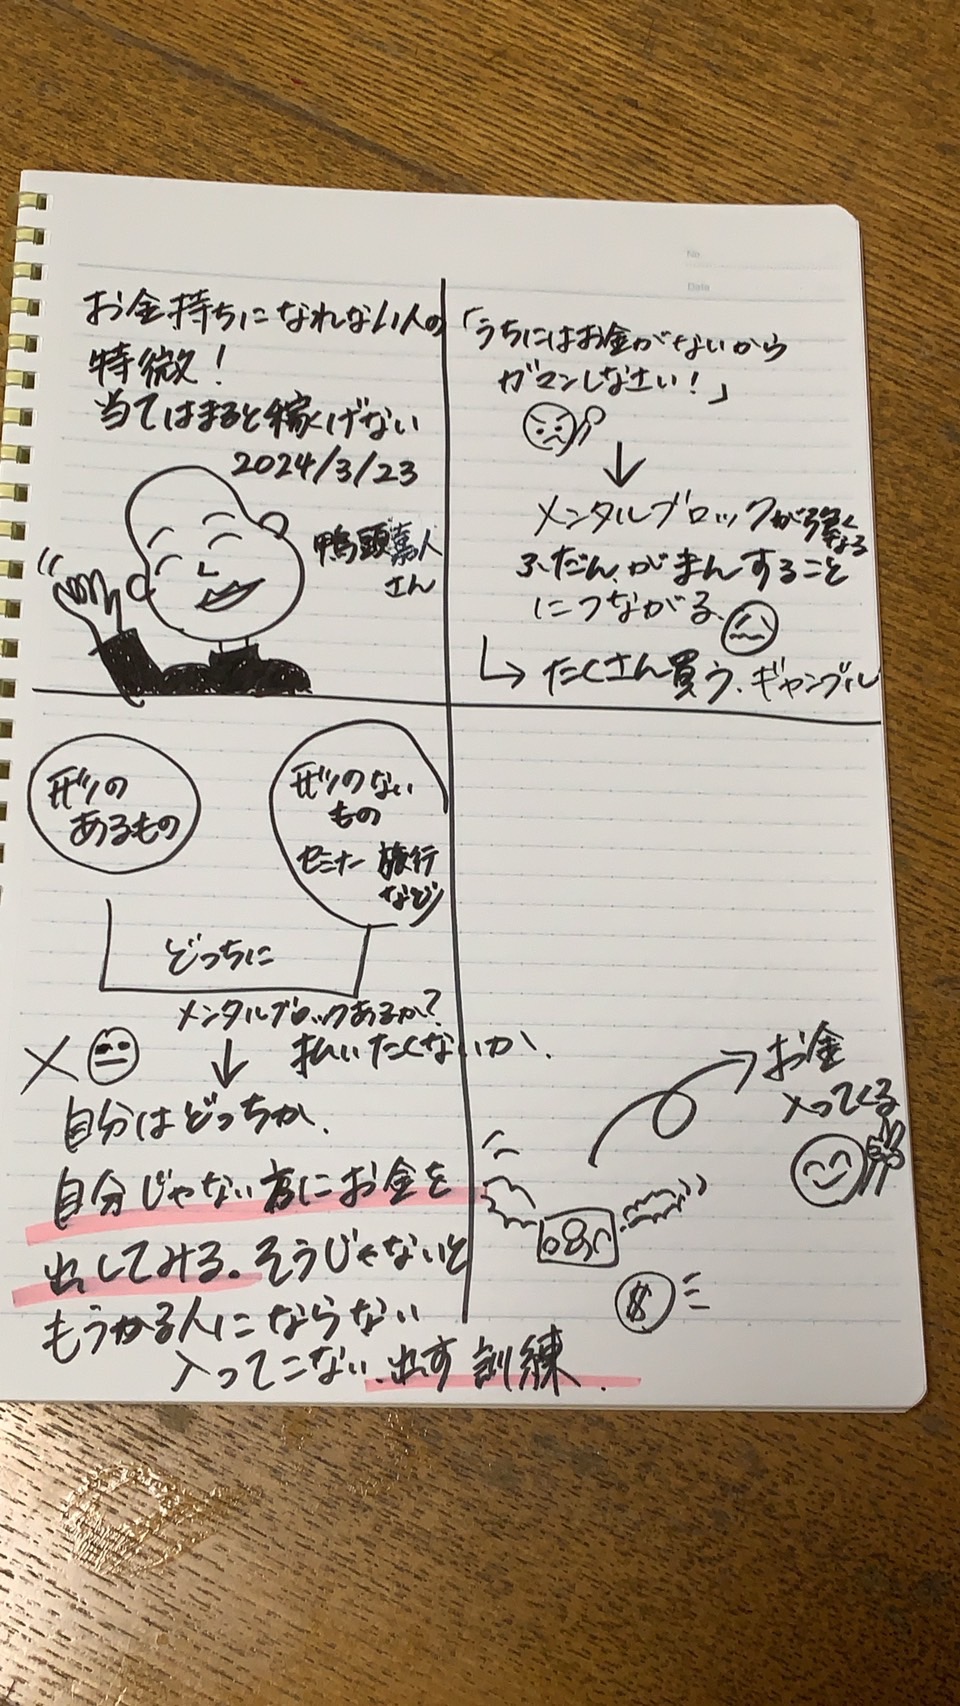 No.
Date
お金持ちになれない人の
特徴！
当てはまると稼げない
2024/3/23
鴨頭嘉人
さん
「うちにはお金がないから
ガマンしなさい！」
メンタルブロックが強くなる
ふだん、がまんすること
につながる、
たくさん買う、ギャンブル
形の
あるもの
形のない
もの
セミナー 旅行
など
どっちに
メンタルブロックあるか？
払いたくないか、
自分はどっちか、
自分じゃない方にお金を
出してみる。そうじゃないと
もうかる人にならない
入ってこない、出す訓練、
お金
入ってくる
$